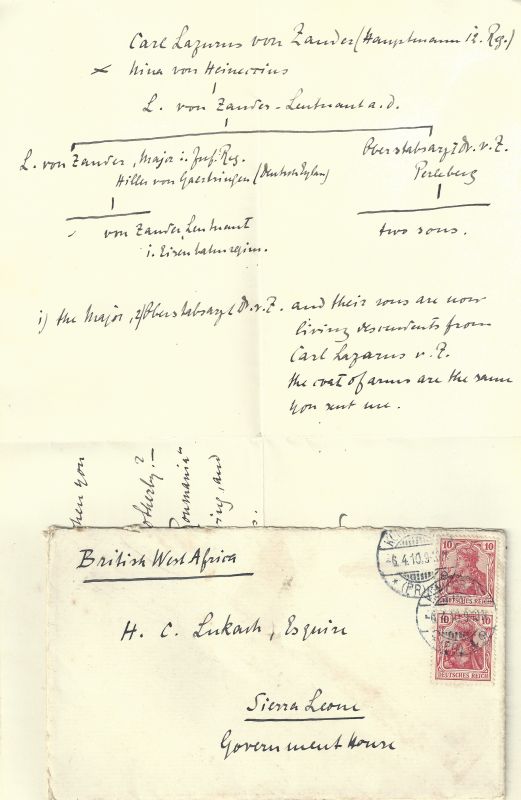 Carl Lazarus von Zander (Hauptmann i. R. Reg.)
Nina von Heineccius
L. von Zander - Leutnant a. d.
L. von Zander, Major i. Inf. Reg.
Hiller von Gaertringen (Deutsch Eylau)
Oberstabsarzt Dr. v. Z.
Perleberg
von Zander, Leutnant
i. Eisenbahnregim.
two sons.
1) the Major, 2) Oberstabsarzt Dr. v. Z. and their sons are now
living descendents from
Carl Lazarus v. Z.
the coat of arms are the same
you sent me.
hen you
otherly? -
Roumania"
ing, and
British West Africa
H. C. Lukach, Esquire
Sierra Leone
Government House
10 10
DEUTSCHES REICH
6.4.10.9-10
(PR)
10 10
DEUTSCHES REICH